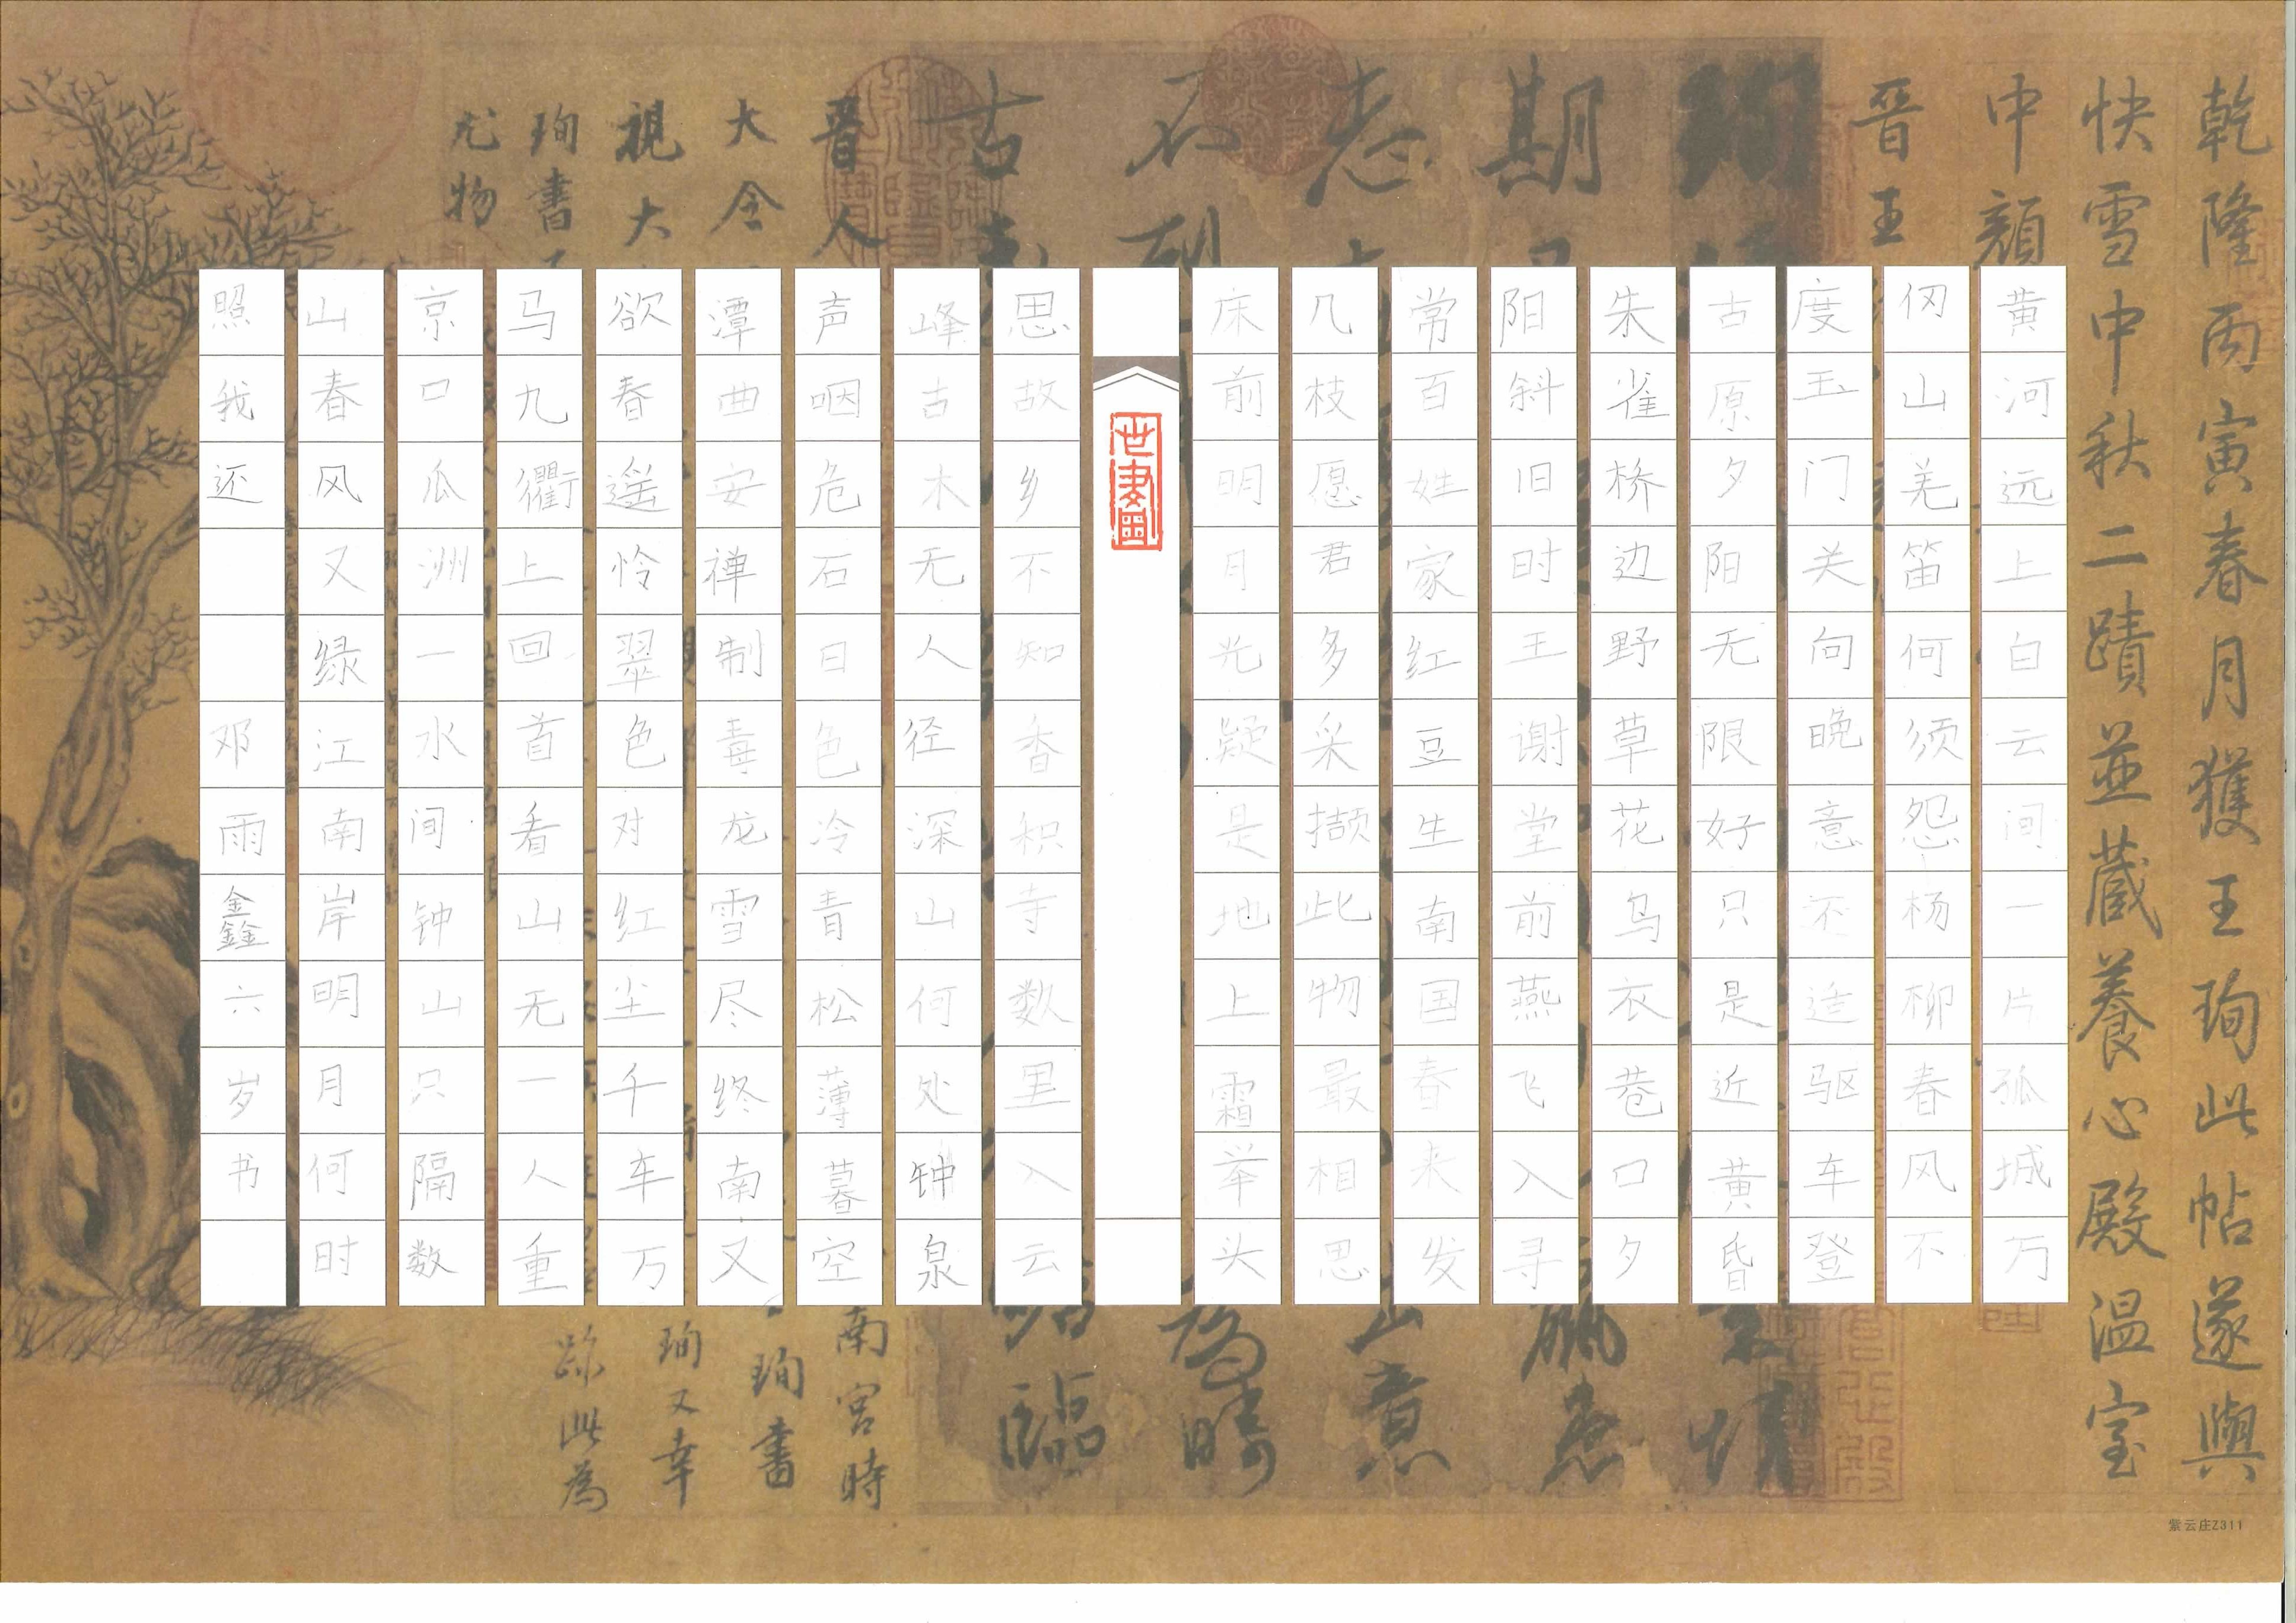 乾隆丙寅春月獲王珣此帖遂與
快雪中秋二蹟並藏養心殿温室
中顔
晉王
期
志
石
古
晉人
大令
視大
珣書
尤物
黄河远上白云间一片孤城万
仞山羌笛何须怨杨柳春风不
度玉门关向晚意不适驱车登
古原夕阳无限好只是近黄昏
朱雀桥边野草花乌衣巷口夕
阳斜旧时王谢堂前燕飞入寻
常百姓家红豆生南国春来发
几枝愿君多采撷此物最相思
床前明月光疑是地上霜举头
思故乡不知香积寺数里入云
峰古木无人径深山何处钟泉
声咽危石日色冷青松薄暮空
潭曲安禅制毒龙雪尽终南又
欲春遥怜翠色对红尘千车万
马九衢上回首看山无一人重
京口瓜洲一水间钟山只隔数
山春风又绿江南岸明月何时
照我还 邓雨鑫六岁书
意
時
臨
南宮時
珣書
珣又幸
跡此為
紫云庄Z311